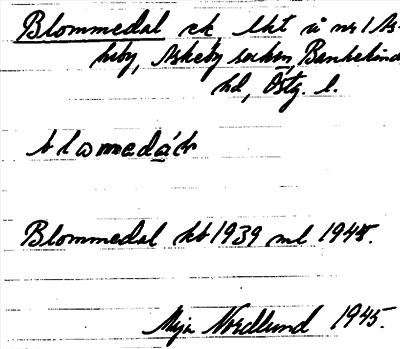 Blommedal ek, lht å nr 1 As-
keby, Askeby socken, Bankekind
hd, Östg. l.
Blommedal kb 1939 ml 1945.
Maja Nordlund 1945.